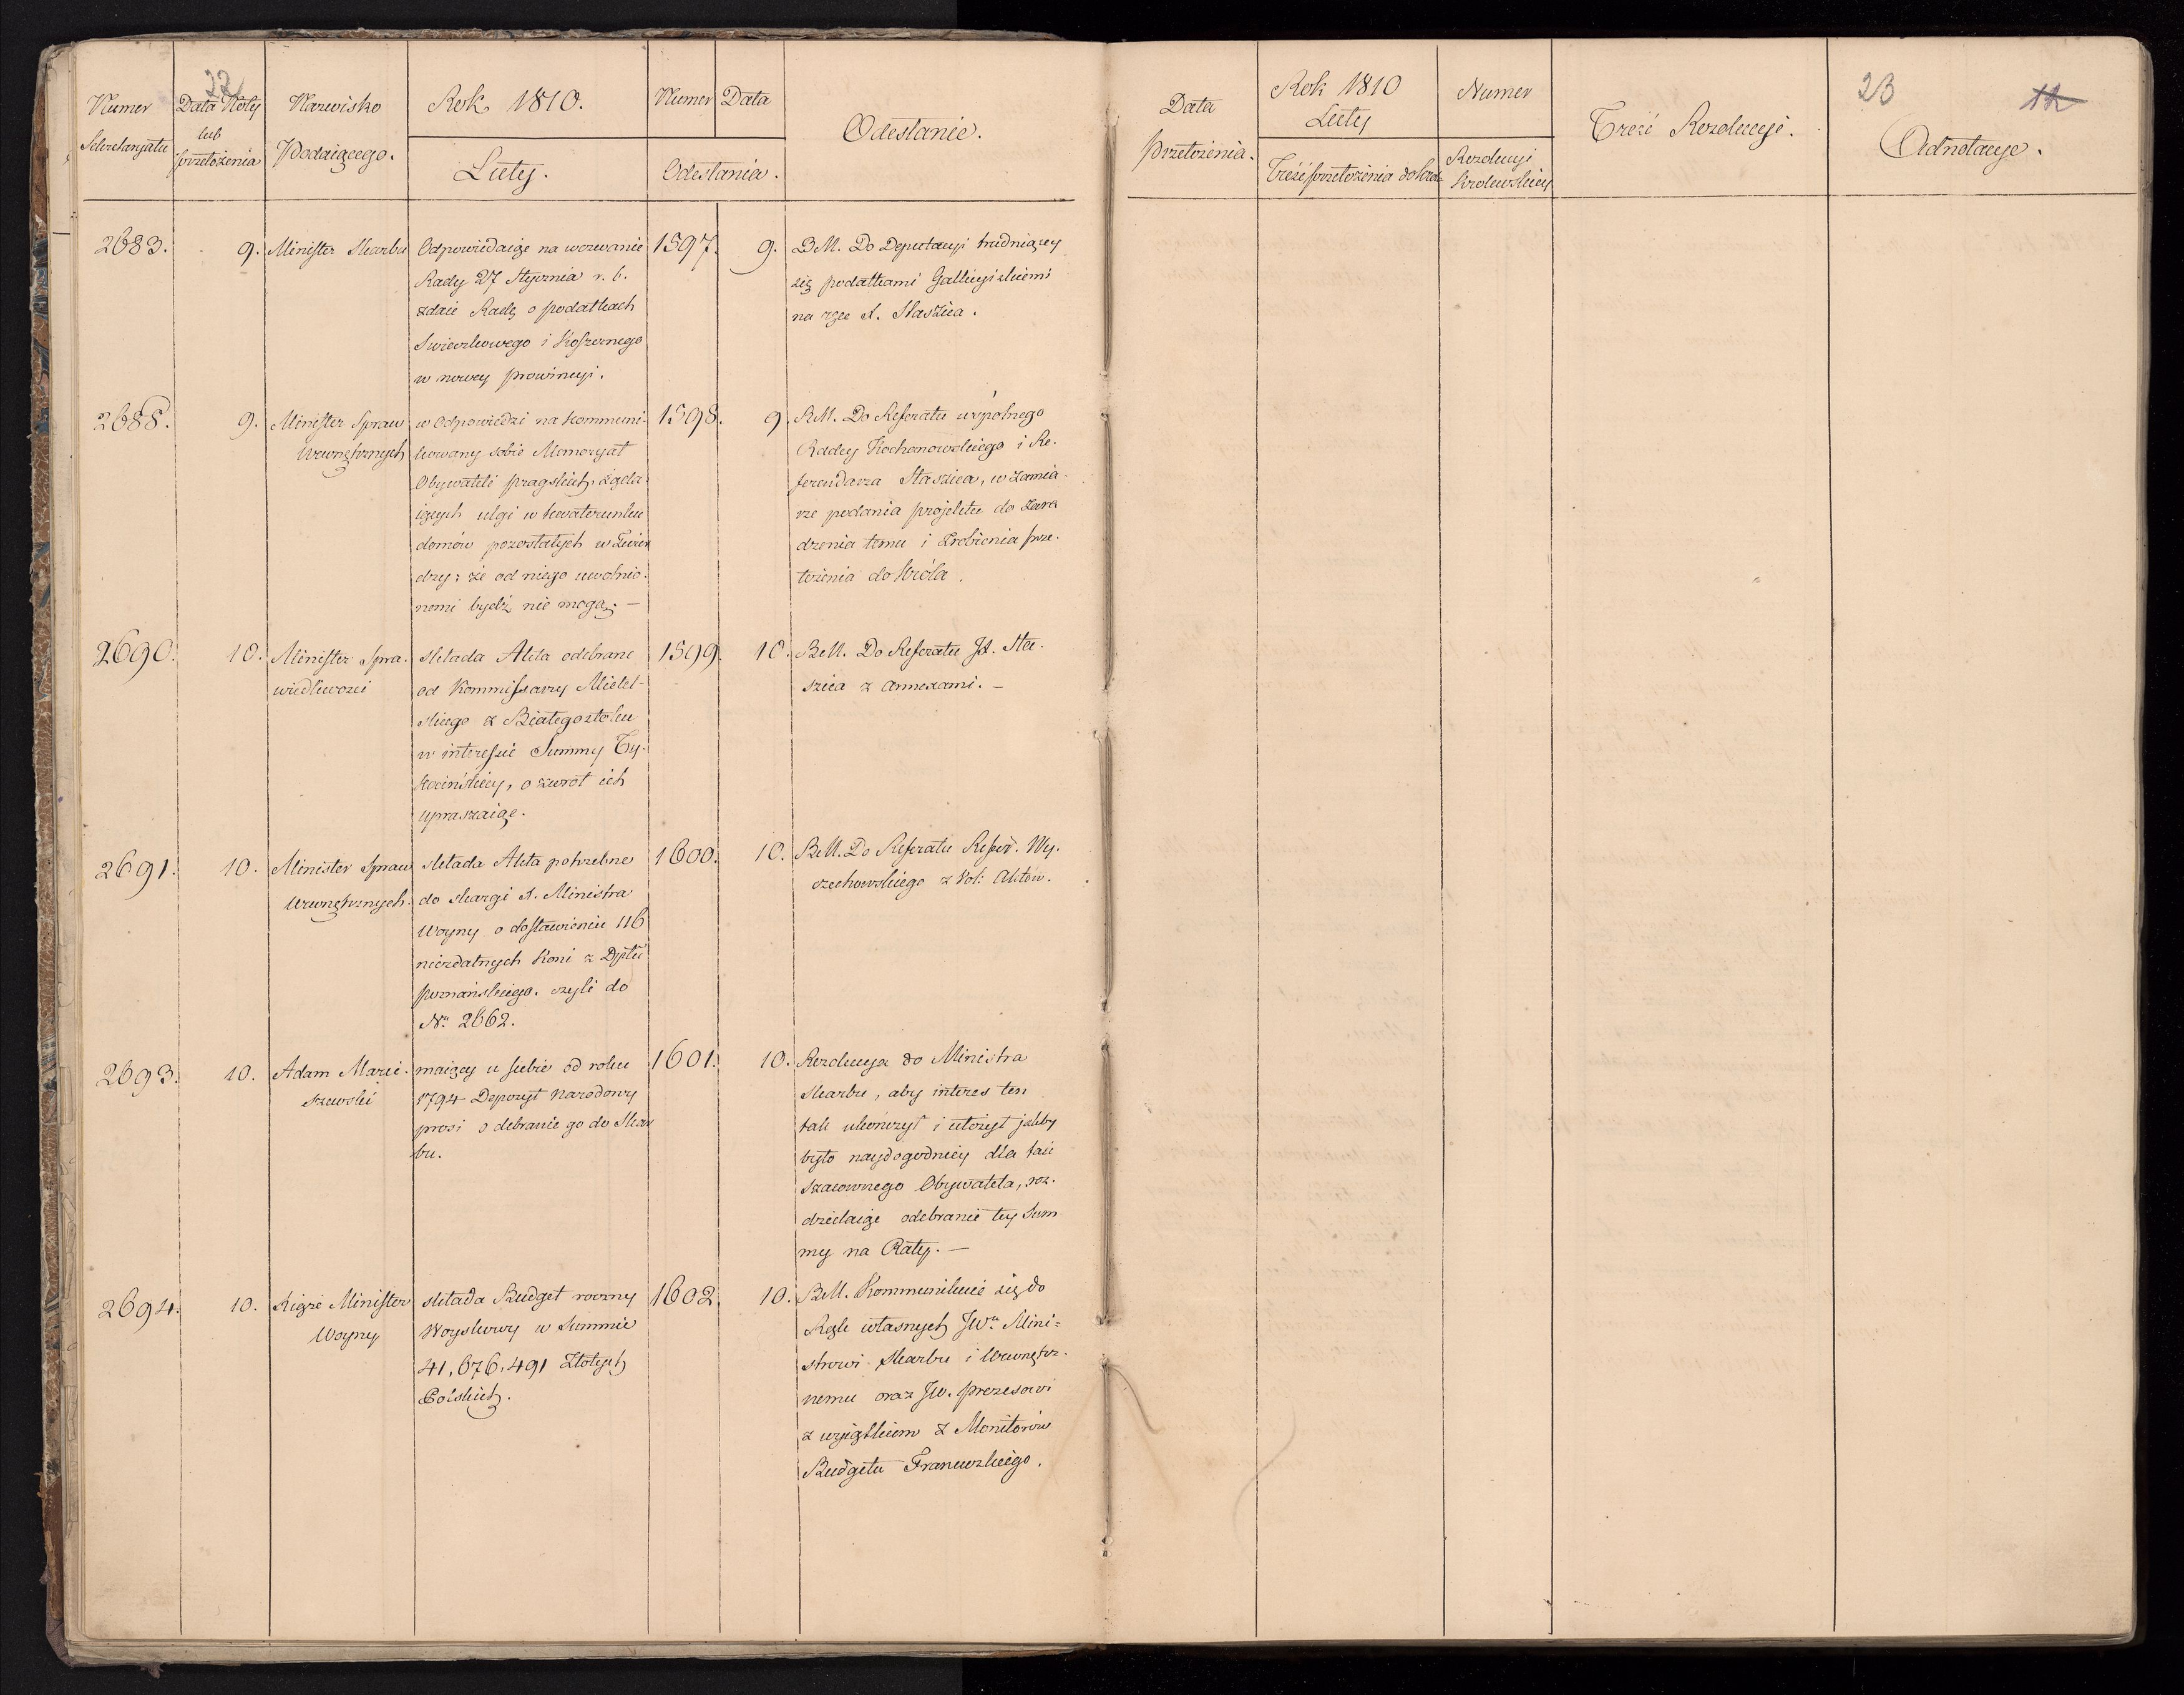 22
Numer
Sekretaryatu
Data Noty
lub
przełożenia
Nazwisko
Podaiącego.
Rok 1810.
Luty.
Numer Data
Odesłania.
Odesłanie.
2683. 9. Minister Skarbu
Odpowiedaiąc na wezwanie
Rady 27 Stycznia r. b.
zdaie Radę o podatkach
Swieczkowego i Koszernego
w nowey prowincyi.
1597. 9.
BM. Do Deputacyi trudniącey
się podatkami Gallicyiskiemi
na ręce J. Staszica.
2688. 9. Minister Spraw
Wewnętrznych
w Odpowiedzi na kommuni-
kowany sobie Memoryał
Obywateli pragskich żąda-
iących ulgi w kwaterunku
domów pozostałych w Twier
dzy; że od niego uwolnio-
nemi bydź nie mogą. —
1598. 9.
BM. Do Referatu wspólnego
Radcy Kochanowskiego i Re-
ferendarza Staszica, w zamia-
rze podania projektu do zara
dzenia temu i zrobienia prze-
łożenia do Króla.
2690. 10. Minister Spra-
wiedliwości
składa Akta odebrane
od Kommissarzy Miełel-
skiego z Białegostoku
w interessie Summy Ty-
kocinskiey, o zwrot ich
upraszaiąc.
1599. 10.
BM. Do Referatu JX. Sta-
szica z annexami. —
2691. 10. Minister Spraw
Wewnętrznych.
składa Akta potrzebne
do skargi X. Ministra
Woyny o dostawienie 116
niezdatnych Koni z Dpttu
poznańskiego. czyli do
Nru 2662.
1600. 10.
BM. Do Referatu Refer. Wy-
czechowskiego z Vol: Aktów.
2693. 10. Adam Marci-
szewski
maiący u siebie od roku
1794 Depozyt Narodowy
prosi o debranie go do Skar
bu.
1601. 10.
Rezolucya do Ministra
Skarbu, aby interes ten
tak ukończył i ułożył jakby
było naydogodniey dla tak
szacownego Obywatela, roz-
dzielaiąc odebranie tey Sum-
my na Raty. —
2694. 10. Xiąże Minister
Woyny
składa Budget roczny
Woyskowy w Summie
41,676,491 Złotych
Polskich.
1602. 10.
BM. Kommunikuie się do
Rąk własnych JWu Mini-
strowi Skarbu i Wewnętrz-
nemu oraz JW. prezesowi
z wyiątkiem z Monitorów
Budgetu Francuzkiego.
Data
przełożenia.
Rok 1810
Luty
Treść przełożenia do Króla
Numer
Rezolucyi
Krolewskiey
Treść Rezolucyi.
23
12
Adnotacye.